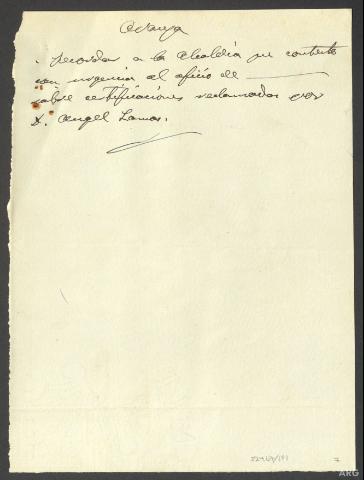 . recordar a la alcaldía que conteste
con urgencia al oficio de
sobre certificaciones reclamadas por
D. Angel Lamas.
ARG